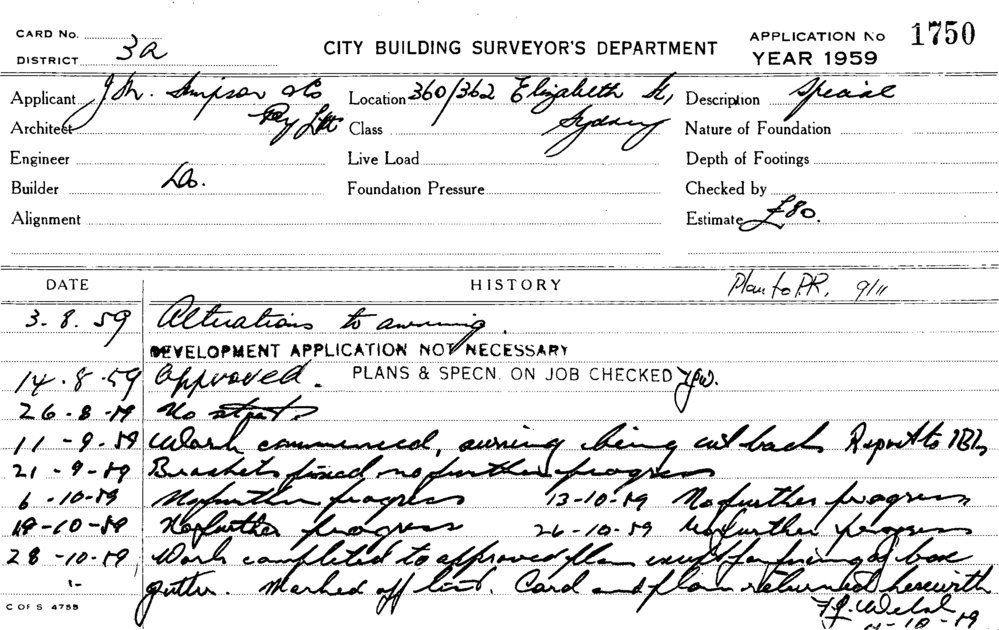 CARD No.
DISTRICT 3a
CITY BUILDING SURVEYOR'S DEPARTMENT
APPLICATION No 1750
YEAR 1959
Applicant J. M. Simpson & Co Pty Ltd
Location 360/362 Elizabeth St, Sydney
Description Special
Architect
Class
Nature of Foundation
Engineer
Live Load
Depth of Footings
Builder Do.
Foundation Pressure
Checked by
Alignment
Estimate £80.
DATE HISTORY Plan to P.R. 9/11
3.8.59 Alterations to awning.
DEVELOPMENT APPLICATION NOT NECESSARY
14.8.59 Approved. PLANS & SPECN. ON JOB CHECKED
26-8-59 No start
11-9-59 Work commenced, awning being cut back Report to
21-9-59 Brackets fixed no further progress
6-10-59 No further progress 13-10-59 No further progress
19-10-59 No further progress 26-10-59 No further progress
28-10-59 Work completed to approved plan except for fixing of box
gutter. Marked off list. Card and plan returned herewith
C OF S 4755